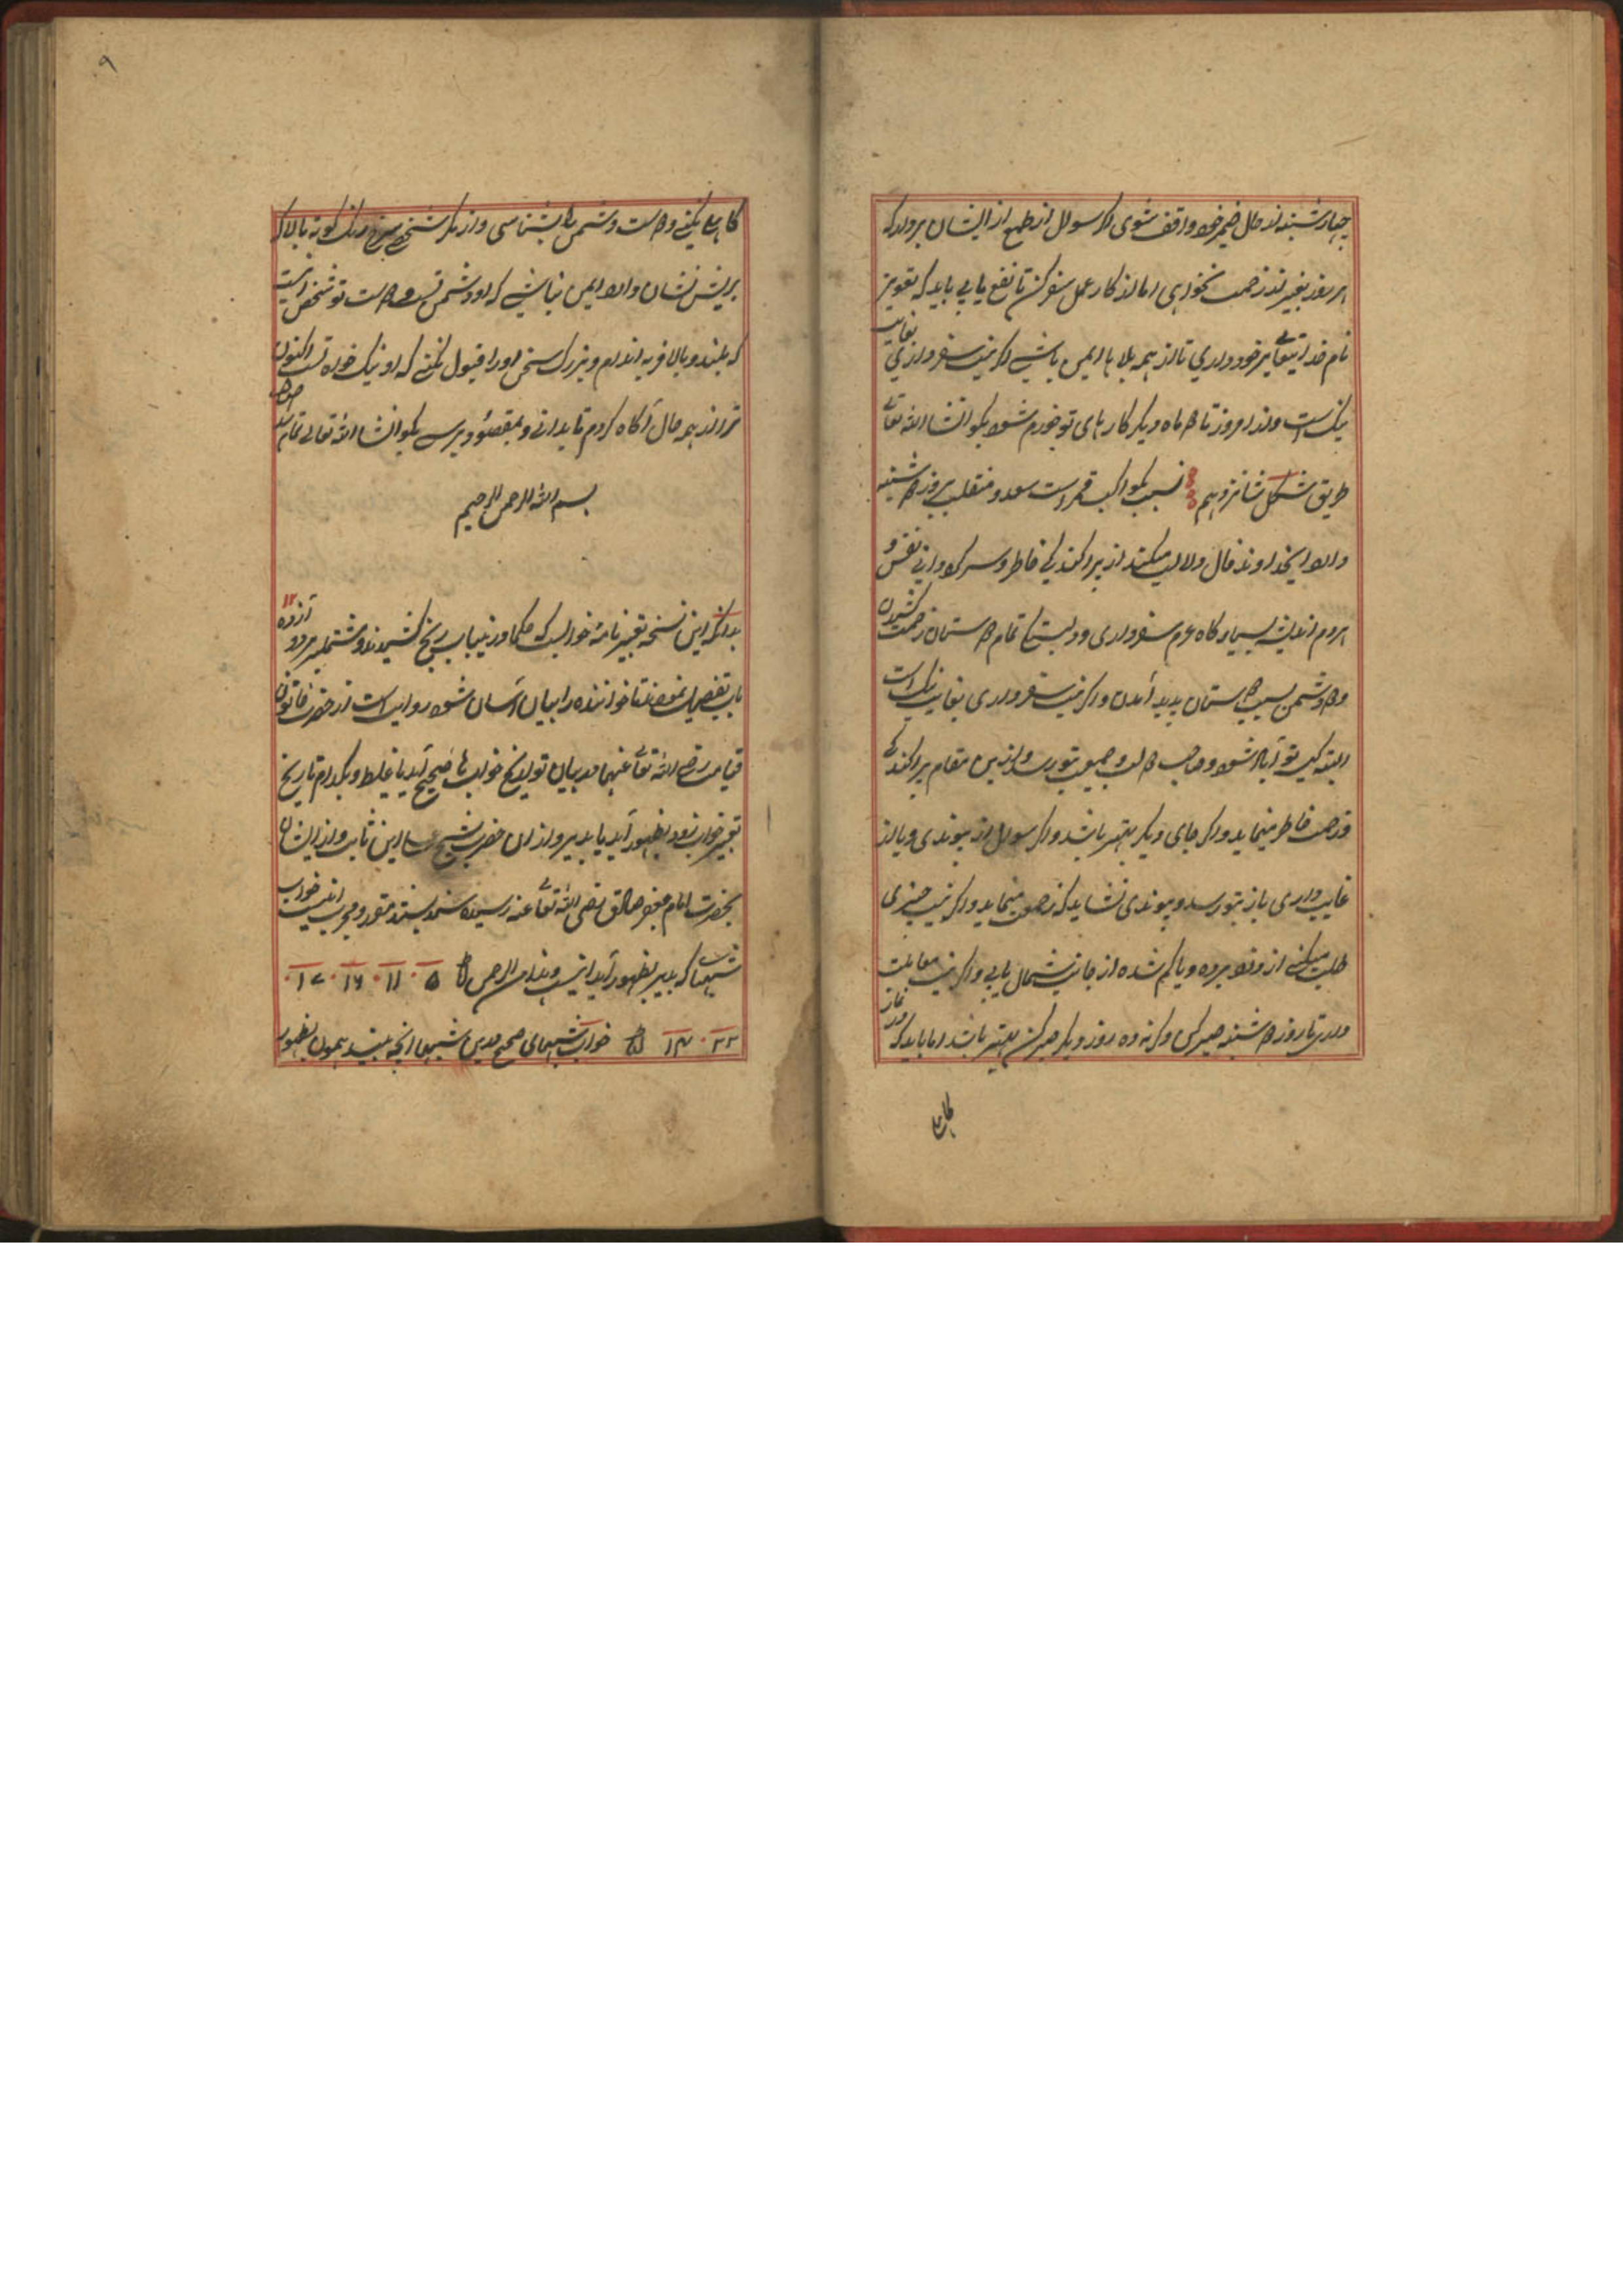 چهارشنبه از حال ضمیر خود واقف شوی اگر سوال از طمع از ایشان بر
امروز بغیر از زحمت نخواهی اما از کار عمل سفر کن تا نفع یابی باید که تعویذ
نام خدایتعالی بر خود داری تا از همه بلاها ایمن باشی اگر نیت سفر داری بغایت
نیک است و از امروز تا ماه دیگر کارهای تو خورم شود بگو انشا الله تعالی
طریق شکل شانزدهم نسبت بکواکب قمر است سعد و منقلب بروز دوشنبه
دارد ایخداوند فال دلالت میکند از پراکندگی خاطر و سر و نقش
مردم اندیشه بسیار گاه عزم سفر داری و تمام دوستان زحمت کشیدن
و دشمن بسبب دوستان پدید آمدن و اگر نیت سفر داری بغایت نیک است
البته تو آباد شود و صاحب دولت و جمعیت بتو رسد و ازین مقام پراکندگی
و زحمت خاطر مینماید و اگر جای دیگر بهتر باشد و اگر سوال از پیوندی و یا از
غایب داری باز بتو رسد و پیوندی نشاید که زحمت مینماید و اگر نیت چیزی
طلب میکنی از دزد برده و یا گم شده از جانب شمال یابی و اگر نیت
داری تا روز دوشنبه صبر کن و گرنه ده روز دیگر صبر کن بهتر باشد اما باید که در نماز
کاهلی
کاهلی نکنی دوست و دشمن را بشناسی و از مکر شخصی سرخ رنگ کوته بالا که
بر نشان دارد ایمن نباشی که او دشمن تست و دوست تو شخصی است
که بلند و بالا فربه اندام و بزرگ سخن او را قبول کنی که او نیک خواه تست اکنون
ترا از همه حال آگاه کردم تا بدانی و بمقصود برسی بگو انشا الله تعالی تمام شد
بسم الله الرحمن الرحیم
بدانکه این نسخه تعبیر نامه خوابست که حکما در باب رنج کشیدند و مشتمل بر دوازده
باب تفصیل نمودند تا خواننده را بیان آسان شود روایت است از حضرت خاتون
قیامت رضی الله تعالی عنها در بیان تواریخ خواب ها صحیح آید یا غلط و بکدام تاریخ
تعبیر خواب زود بظهور آید یا بدیر و از ان حضرت شیخ این ثابت و از ایشان
بحضرت امام جعفر صادق رضی الله تعالی عنه رسیده خواب
شبها که بدیر بظهور آید اینست ۵ ۱۱ ۱۶ ۱۷
۲۲ خواب شبهای صحیح درین شبها آنچه بیند همون بظهور